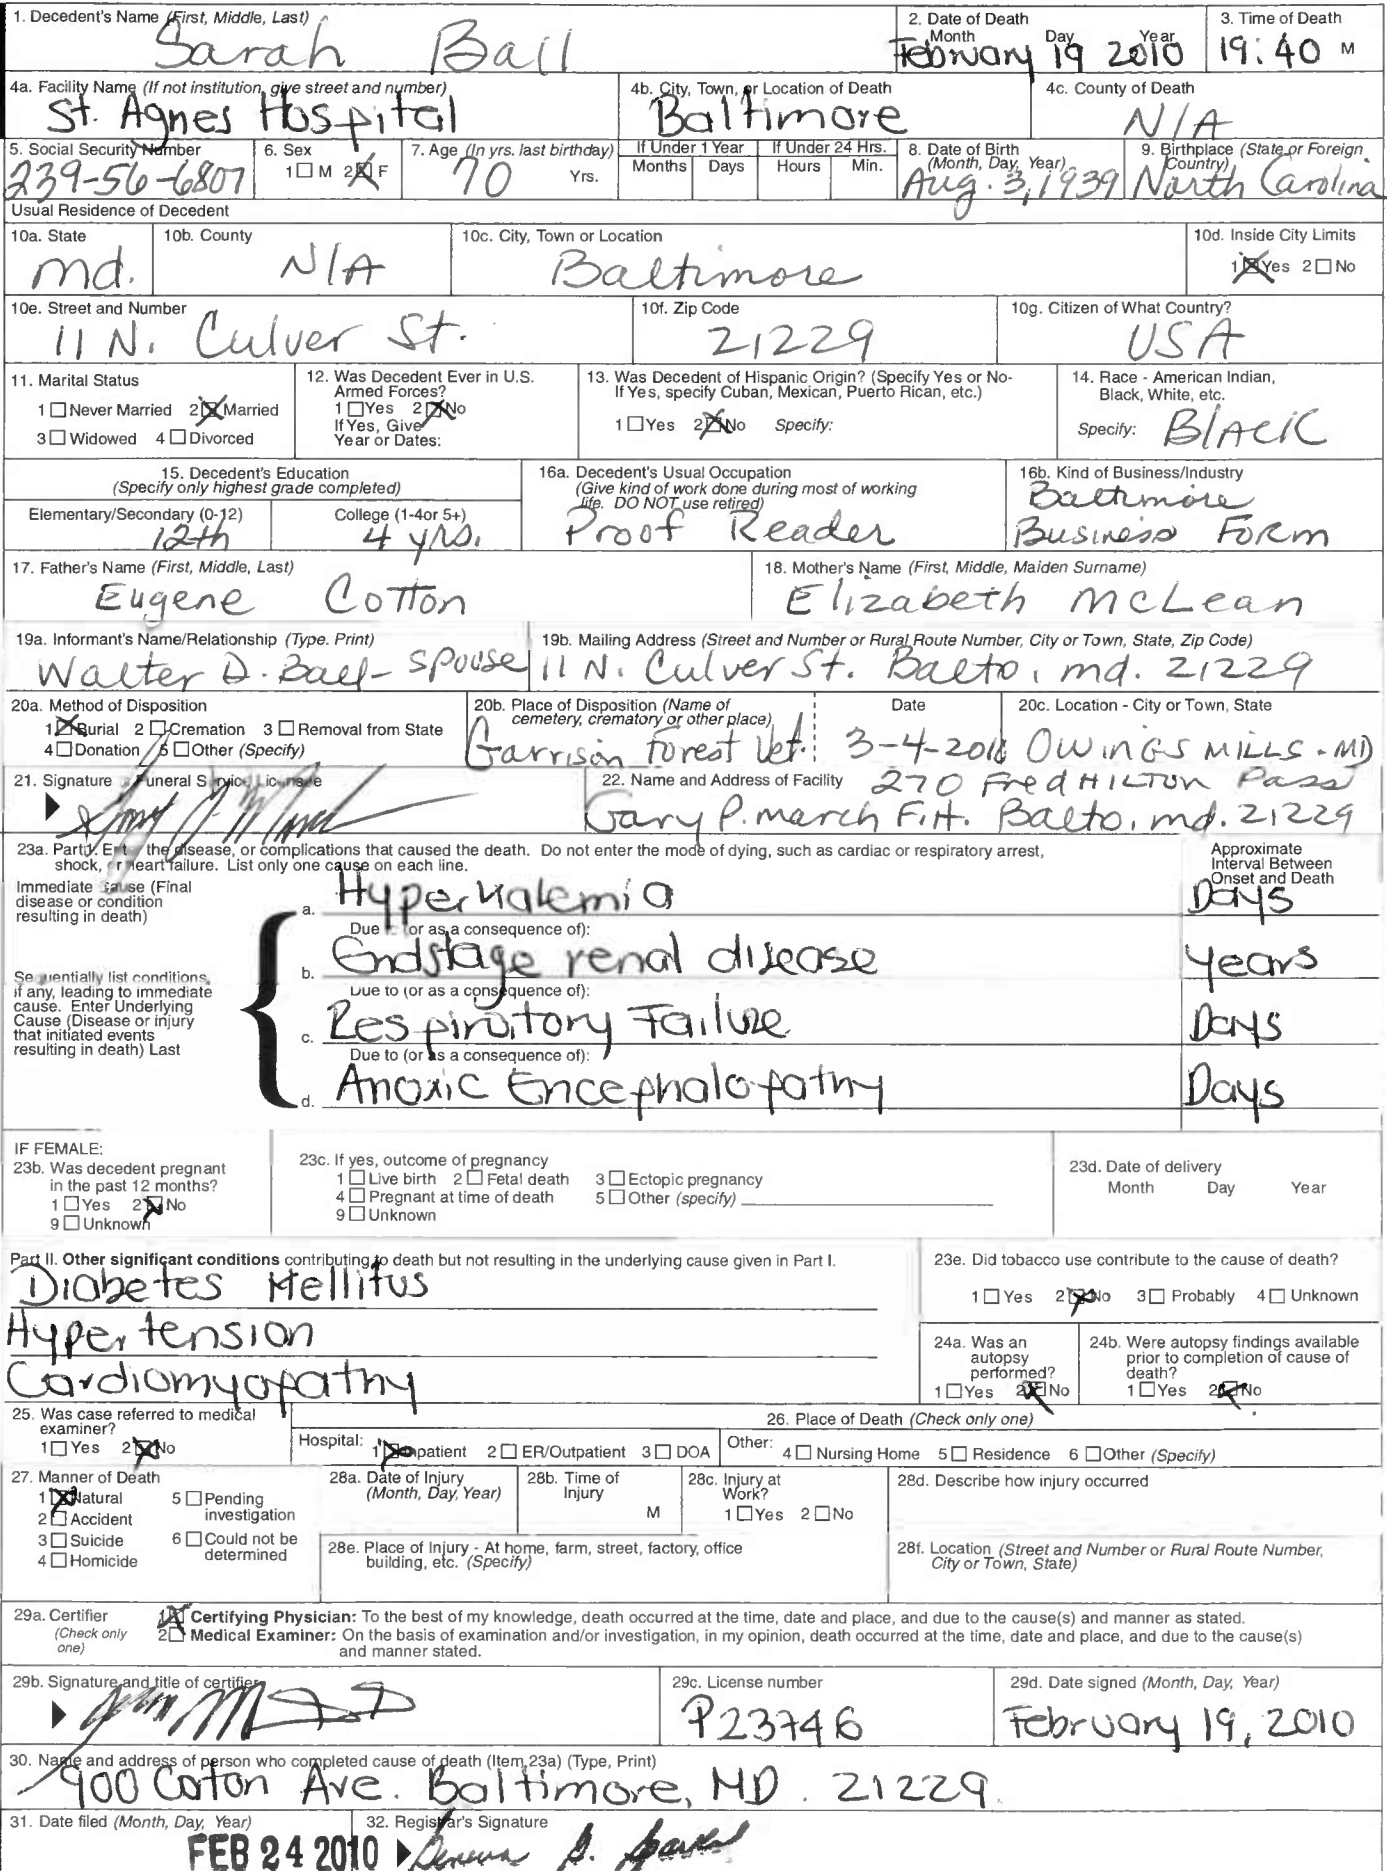 1. Decedent's Name (First, Middle, Last)
Sarah Ball
2. Date of Death
Month Day Year
February 19 2010
3. Time of Death
19:40 M
4a. Facility Name (If not institution, give street and number)
St. Agnes Hospital
4b. City, Town, or Location of Death
Baltimore
4c. County of Death
N/A
5. Social Security Number
239-56-6807
6. Sex
1 ☐ M 2 ☒ F
7. Age (In yrs. last birthday)
70 Yrs.
If Under 1 Year
Months Days
If Under 24 Hrs.
Hours Min.
8. Date of Birth
(Month, Day, Year)
Aug. 3, 1939
9. Birthplace (State or Foreign
Country)
North Carolina
Usual Residence of Decedent
10a. State
md.
10b. County
N/A
10c. City, Town or Location
Baltimore
10d. Inside City Limits
1 ☒ Yes 2 ☐ No
10e. Street and Number
11 N. Culver St.
10f. Zip Code
21229
10g. Citizen of What Country?
USA
11. Marital Status
1 ☐ Never Married 2 ☒ Married
3 ☐ Widowed 4 ☐ Divorced
12. Was Decedent Ever in U.S.
Armed Forces?
1 ☐ Yes 2 ☒ No
If Yes, Give
Year or Dates:
13. Was Decedent of Hispanic Origin? (Specify Yes or No-
If Yes, specify Cuban, Mexican, Puerto Rican, etc.)
1 ☐ Yes 2 ☒ No Specify:
14. Race - American Indian,
Black, White, etc.
Specify: Black
15. Decedent's Education
(Specify only highest grade completed)
Elementary/Secondary (0-12)
12th
College (1-4or 5+)
4 yrs.
16a. Decedent's Usual Occupation
(Give kind of work done during most of working
life. DO NOT use retired)
Proof Reader
16b. Kind of Business/Industry
Baltimore
Business Form
17. Father's Name (First, Middle, Last)
Eugene Cotton
18. Mother's Name (First, Middle, Maiden Surname)
Elizabeth McLean
19a. Informant's Name/Relationship (Type. Print)
Walter D. Ball- Spouse
19b. Mailing Address (Street and Number or Rural Route Number, City or Town, State, Zip Code)
11 N. Culver St. Balto, md. 21229
20a. Method of Disposition
1 ☒ Burial 2 ☐ Cremation 3 ☐ Removal from State
4 ☐ Donation 5 ☐ Other (Specify)
20b. Place of Disposition (Name of
cemetery, crematory or other place)
Garrison Forest Vet.
Date
3-4-2010
20c. Location - City or Town, State
Owings Mills - MD
21. Signature Funeral Service Licensee
22. Name and Address of Facility 270 Fred Hilton Pass
Gary P. march F.H. Balto, md. 21229
23a. Part I. Enter the disease, or complications that caused the death. Do not enter the mode of dying, such as cardiac or respiratory arrest,
shock, or heart failure. List only one cause on each line.
Approximate
Interval Between
Onset and Death
Immediate Cause (Final
disease or condition
resulting in death)
a. Hyperkalemia Days
Due to (or as a consequence of):
Sequentially list conditions,
if any, leading to immediate
cause. Enter Underlying
Cause (Disease or injury
that initiated events
resulting in death) Last
b. Endstage renal disease years
Due to (or as a consequence of):
c. Respiratory Failure Days
Due to (or as a consequence of):
d. Anoxic Encephalopathy Days
IF FEMALE:
23b. Was decedent pregnant
in the past 12 months?
1 ☐ Yes 2 ☒ No
9 ☐ Unknown
23c. If yes, outcome of pregnancy
1 ☐ Live birth 2 ☐ Fetal death 3 ☐ Ectopic pregnancy
4 ☐ Pregnant at time of death 5 ☐ Other (specify)
9 ☐ Unknown
23d. Date of delivery
Month Day Year
Part II. Other significant conditions contributing to death but not resulting in the underlying cause given in Part I.
Diabetes Mellitus
Hypertension
Cardiomyopathy
23e. Did tobacco use contribute to the cause of death?
1 ☐ Yes 2 ☒ No 3 ☐ Probably 4 ☐ Unknown
24a. Was an
autopsy
performed?
1 ☐ Yes 2 ☒ No
24b. Were autopsy findings available
prior to completion of cause of
death?
1 ☐ Yes 2 ☒ No
25. Was case referred to medical
examiner?
1 ☐ Yes 2 ☒ No
26. Place of Death (Check only one)
Hospital: 1 ☒ Inpatient 2 ☐ ER/Outpatient 3 ☐ DOA
Other: 4 ☐ Nursing Home 5 ☐ Residence 6 ☐ Other (Specify)
27. Manner of Death
1 ☒ Natural
2 ☐ Accident
3 ☐ Suicide
4 ☐ Homicide
5 ☐ Pending
investigation
6 ☐ Could not be
determined
28a. Date of Injury
(Month, Day, Year)
28b. Time of
Injury
M
28c. Injury at
Work?
1 ☐ Yes 2 ☐ No
28d. Describe how injury occurred
28e. Place of Injury - At home, farm, street, factory, office
building, etc. (Specify)
28f. Location (Street and Number or Rural Route Number,
City or Town, State)
29a. Certifier
(Check only
one)
1 ☒ Certifying Physician: To the best of my knowledge, death occurred at the time, date and place, and due to the cause(s) and manner as stated.
2 ☐ Medical Examiner: On the basis of examination and/or investigation, in my opinion, death occurred at the time, date and place, and due to the cause(s)
and manner stated.
29b. Signature and title of certifier
29c. License number
P23746
29d. Date signed (Month, Day, Year)
February 19, 2010
30. Name and address of person who completed cause of death (Item 23a) (Type, Print)
900 Caton Ave. Baltimore, MD. 21229
31. Date filed (Month, Day, Year)
FEB 24 2010
32. Registrar's Signature